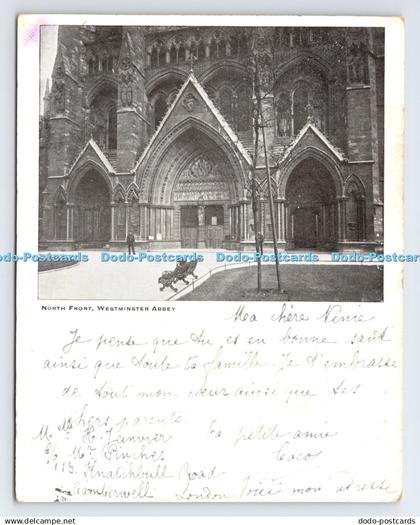 Dodo Postcards Dodo Postcards Dodo Postcards Dodo Postcards Dodo Postcards
North Front, Westminster Abbey
Ma chère Ninie
Je pense que tu es en bonne santé
ainsi que toute ta famille. Je t'embrasse
de tout mon cœur ainsi que tes
chers parents.
Ta petite amie
Coco
Voici mon adresse
M H. Janvier
c/o Mr Pinches
113 Knatchbull Road
Camberwell London
© dodo-postcards
dodo-postcards.com